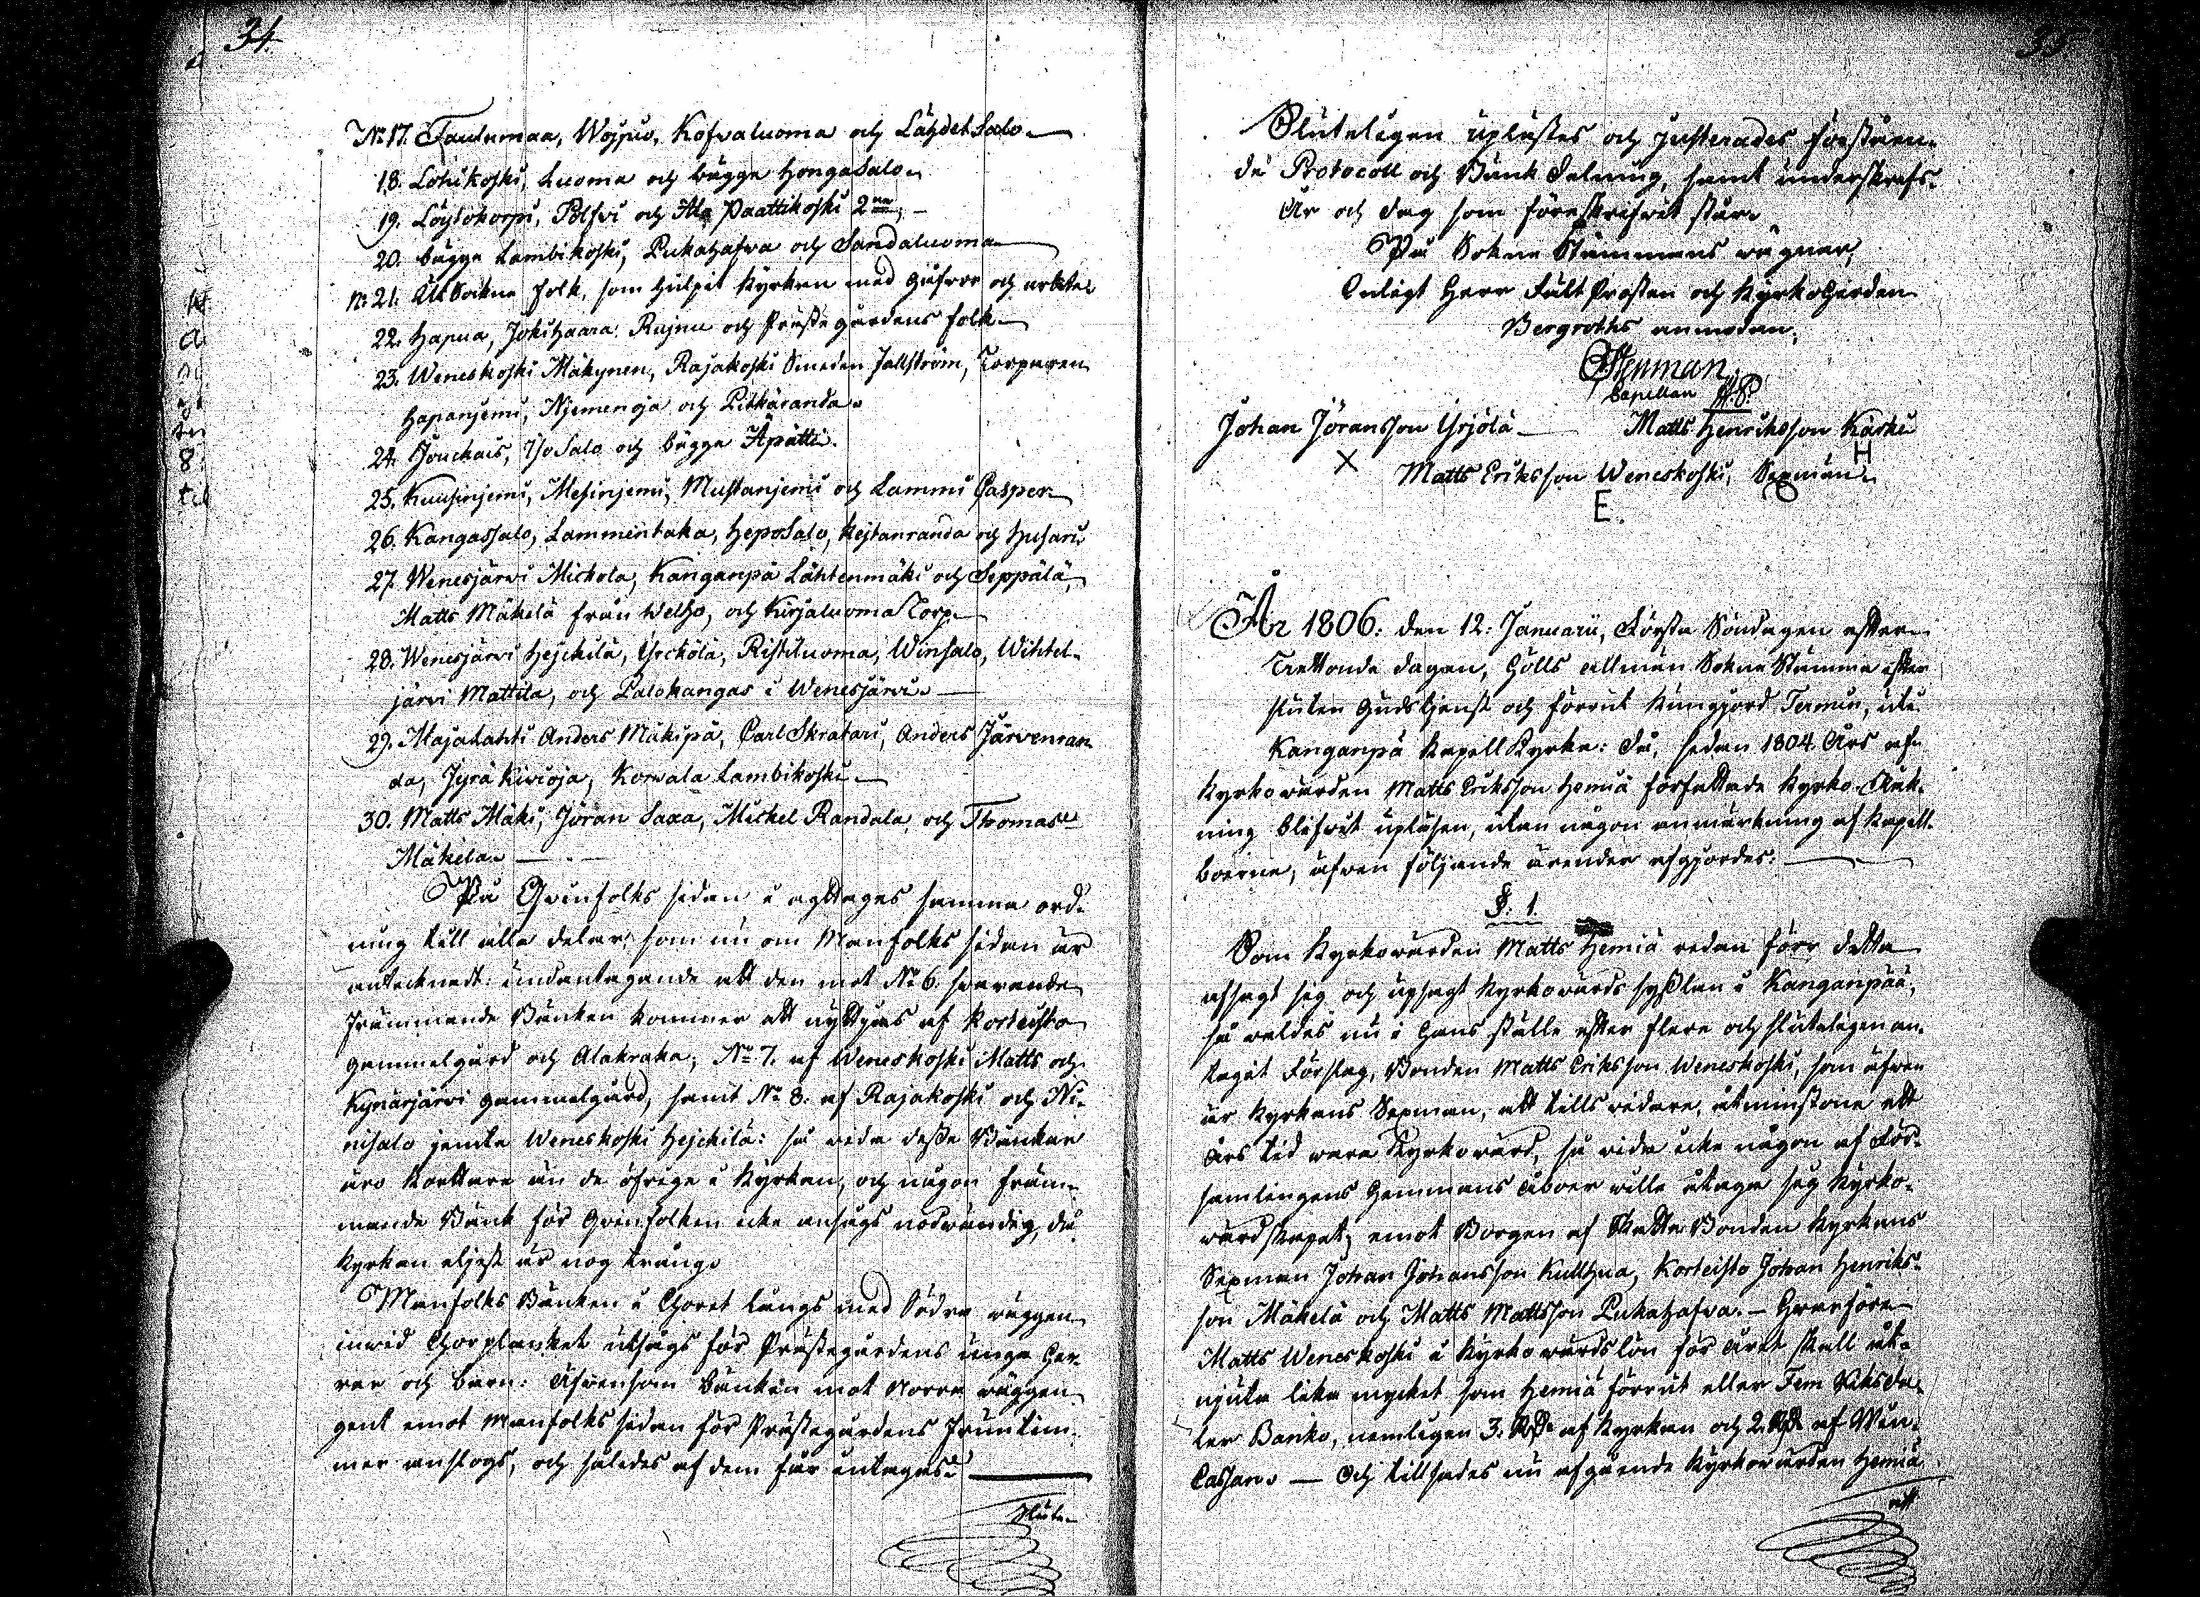 34.
No 17. Taulumaa, Wojpio, Kofvaluoma och Lähdetsalo
18. Lohikoski, Luoma och bägge Hongasalo
19. Löytökorpi, Pölsvi och Ala Paattikoski 2ne,
20. bägge Lambikoski, Pukahafva och Sandaluoma
No 21. Utsockne folk, som hulpit Kyrkan med gåfvor och arbete
22. Hapua, Jokihaara. Rujnu och Prästegårdens folk
23. Weneskoski Mäkynen, Rajakoski Smeden Jallström, Torparen
Hapanjemi, Njemenoja och Pitkäranda.
24. Jouchais, Iso Salo och bägge Apätti.
25. Kuusinjemi, Mesinjemi, Mustanjemi och Lammi Casper
26. Kangassalo, Lammintaka, Heposalo, Kejtanranda och Husari.
27. Wenesjärvi Mickola, Kanganpä Lähtenmäki och Seppälä,
Matts Mäkelä från Welho, och Kirjaluoma Torp.
28. Wenesjärvi Hejckilä, Yrckölä, Ristiluoma, Winsalo, Wihtel-
järvi Mattila, och Palokangas i Wenesjärvi.
29. Majalahti Anders Mäkipä, Carl Skratari, Anders Järvenran-
da, Jyrä Kivioja, Korvala Lambikoski
30. Matts Mäki, Jöran Saxa, Michel Randala, och Thomas
Mäkela.
På Qvinfolks sidan i agttages samma ord-
ning till alla delar, som nu om Manfolks sidan är
antecknadt: undantagande att den mot No 6. svarande
främmande Bänken kommer att nyttjas af Korteisto
gammelgård och Alakraka, No 7. af Weneskoski Matts och
Kynäsjärvi gammelgård, samt No 8. af Rajakoski och Ni-
nisalo jemte Weneskoski Hejckilä: så vida desse Bänkar
äro kortare än de öfriga i Kyrkan, och någon främ-
mande Bänk för Qvinfolken icke ansågs nödwändig, då
Kyrkan eljest är nog trång.
Manfolks Bänken i Choret längs med Södra wäggen
inwid Chorplanket utsågs för Prästegårdens unga Her-
rar och barn: Äfwensom bänken mot Norra wäggen
gent emot Manfolks sidan för Prästegårdens Fruntim-
mer anslogs, och således af dem får intagas.
Slute-
35.
Sluteligen uplästes och justerades förståen-
de Protocoll och Bänk Delning, samt underskrefs.
År och dag som föreskrifvit står.
På Sokne Stämmans vägnar,
Enligt Herr FältProsten och KyrkoHerden
Bergroths anmodan,
Stenman.
Capellan
Johan Jöransson Yrjölä
Matts Henriksson Karhu
X
H
Matts Eriksson Weneskoski, Sexman.
E.
År 1806. den 12. Januarii, Första Söndagen efter
Trettonde dagen, hölls allmän Sokne Stämma efter
sluten Gudstjenst och förrut kungjord Termin, uti
Kanganpä Kapell Kyrka: då, sedan 1804 Års af
Kyrkowärden Matts Eriksson Hemiä författade Kyrko-Räk-
ning blifvit upläsen, utan någon anmärkning af Kapell-
boerne, äfwen följande ärender afgjordes:
§. 1.
Som Kyrkowärden Matts Hemiä redan förr detta
afsagt sig och upsagt Kyrkowärds sysslan i Kanganpää,
så waldes nu i hans ställe efter flere och sluteligen an-
tagit Förslag, Bonden Matts Eriksson Weneskoski, som äfwen
är Kyrkans Sexman, att tills vidare, åtminstone ett
Års tid wara Kyrkowärd, så vida icke någon af För-
samlingens Hemmans åboer wille åtaga sig Kyrko-
wärdskapet; emot Borgen af Skatte Bonden Kyrkans
Sexman Johan Johansson Kullhua, Korteisto Johan Henriks-
son Mäkelä och Matts Mattsson Pukahafva. – Hwarföre
Matts Weneskoski i Kyrkowärds lön för året skall åt-
njuta lika mycket som Hemiä förrut eller Fem Riksda-
ler Banko, nemligen 3. Rd af Kyrkan och 2. Rd af Win-
Cassan. — Och tillsades nu afgående Kyrkowärden Hemiä
att